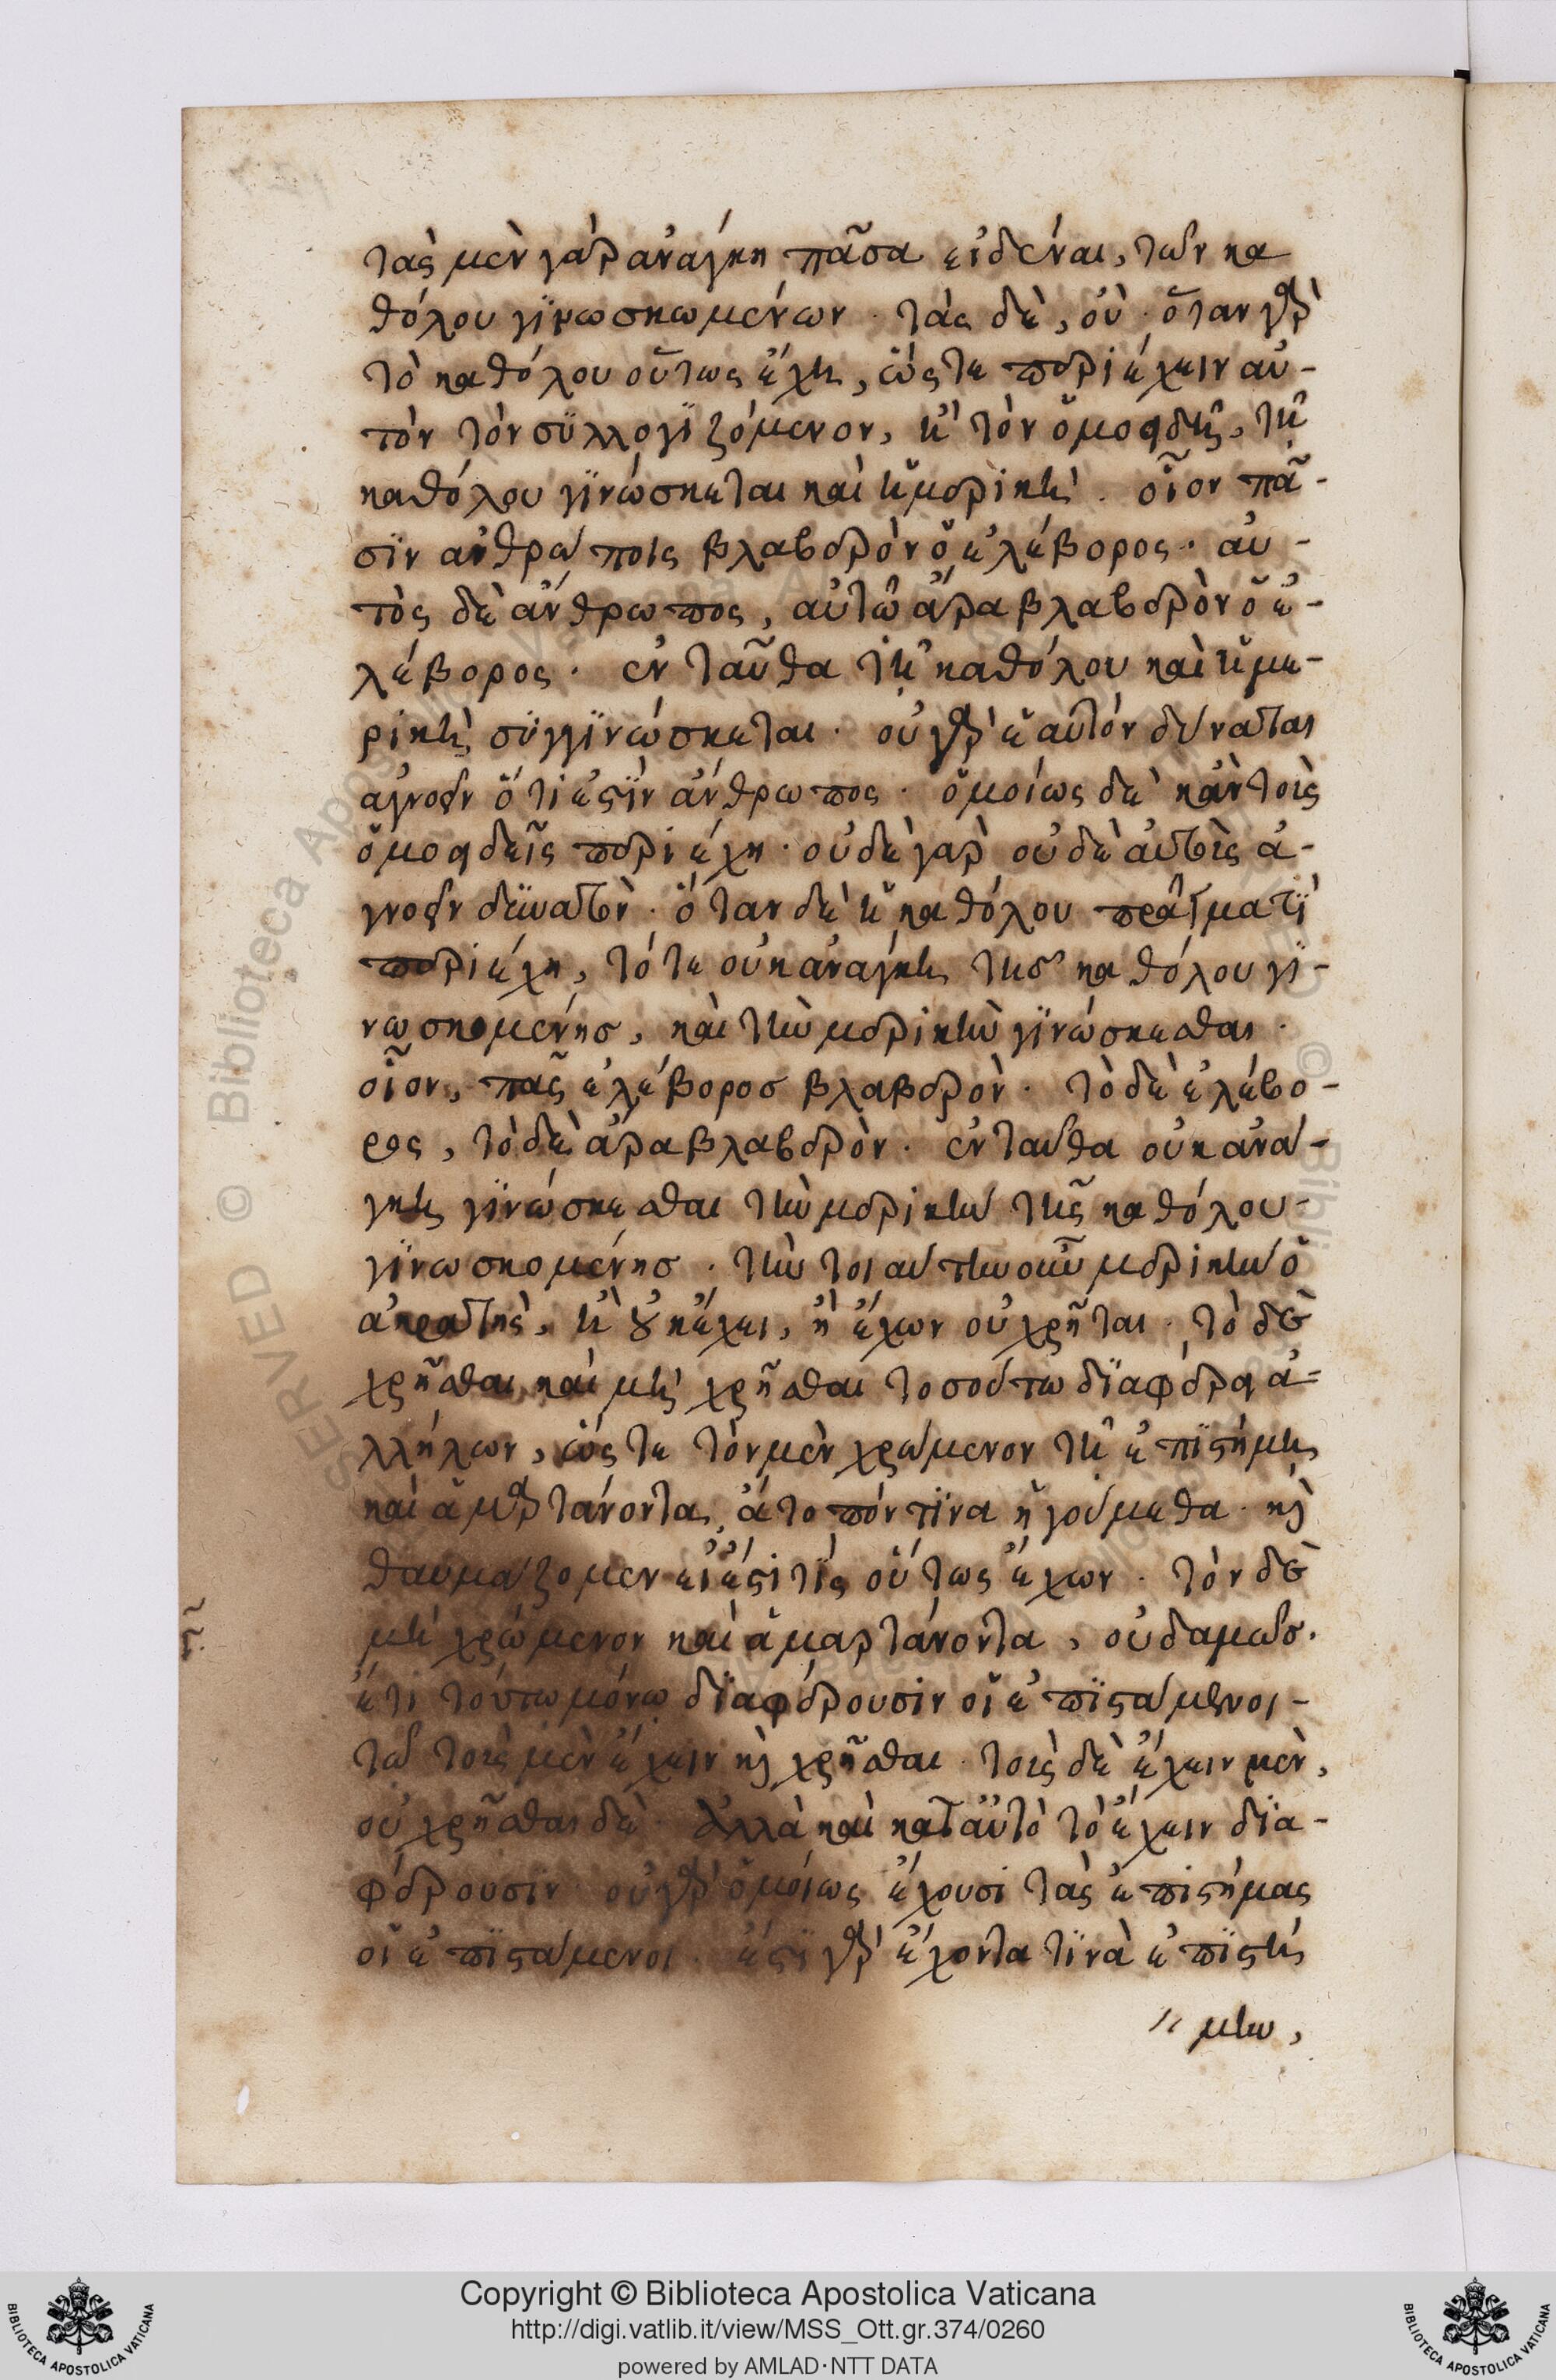 τὰς μὲν γὰρ ἀνάγκη πᾶσα εἰδέναι, τῶν κα
θόλου γϊνωσκωμένων · τὰς δὲ, οὐ · ὅταν γὰρ
τὸ καθόλου οὕτως ἔχη, ὥς τε περιέχειν αὐ-
τὸν τὸν σϋλλογϊζόμενον, ἢ τὸν ὁμοειδῆ, τῆ
καθόλου γϊνώσκεται καὶ ἡ μερικὴ · οἷον πᾶ-
σϊν ἀνθρώποις βλαβερὸν ὁ ἐλέβορος · αὐ-
τὸς δὲ ἄνθρωπος, αὐτῶ ἄρα βλαβερὸν ὁ ἐ-
λέβορος · ἐνταῦθα τῆ καθόλου καὶ ἡ με-
ρικὴ σϋγγϊνώσκεται · οὐ γὰρ ἑαυτόν δύναται
ἀγνοεῖν ὅτι ἐστϊν ἄνθρωπος · ὁμοίως δὲ κἂν τοὶς
ὁμοειδεῖς περιέχη · οὐδὲ γαρ οὐδὲ αὐτοὶς ἀ-
γνοεῖν δϋνατὸν · ὅταν δὲ ἡ καθόλου πράγματϊ
περιέχη, τότε οὐκ ἀνάγκη τῆσ καθόλου γϊ-
νωσκομένησ, καὶ τὴν μερικὴν γϊνώσκεσθαι ·
οἷον, πᾶς ἐλέβοροσ βλαβερὸν · τὸ δὲ ἐλέβο-
ρος, τὸ δὲ ἄρα βλαβερὸν · ἐνταύθα οὐκ ἀνά-
γκη γϊνώσκεσθαι τὴν μερικὴν τῆς καθόλου-
γϊνωσκομένησ · τὴν τοιαύτην οὖν μερικὴν ὁ
ἀκρατὴς, ἢ οὐκ ἔχει, ἢ ἔχων οὐ χρῆται · τὸ δὲ
χρῆσθαι καὶ μὴ χρῆσθαι τοσούτω δϊαφέρει ἀ-
λλήλων, ὥς τε τὸν μὲν χρώμενον τῆ ἐπϊστήμη
καὶ ἁμαρτάνοντα, ἄτοπόν τϊνα ἡγούμεθα · καὶ
θαυμάζομεν εἰ ἔστι τϊς οὕτως ἔχων · τὸν δὲ
μὴ χρώμενον καὶ ἁμαρτάνοντα, οὐδαμῶσ.
ἔτι τούτω μόνω δϊαφέρουσιν οἱ ἐπϊστάμενοι-
τῶ τοὶς μὲν ἔχειν καὶ χρῆσθαι · τοὶς δὲ ἔχειν μὲν,
οὐ χρῆσθαι δὲ · ἀλλὰ καὶ κατ αὐτὸ τὸ ἔχειν δϊα-
φέρουσιν · οὐ γὰρ ὁμοίως ἔχουσι τὰς ἐπιστήμας
οἱ ἐπϊστάμενοι · ἔστϊ γὰρ ἔχοντα τϊνὰ ἐπϊστή
μην,
Copyright © Biblioteca Apostolica Vaticana
http://digi.vatlib.it/view/MSS_Ott.gr.374/0260
powered by AMLAD·NTT DATA
BIBLIOTECA APOSTOLICA VATICANA
BIBLIOTECA APOSTOLICA VATICANA